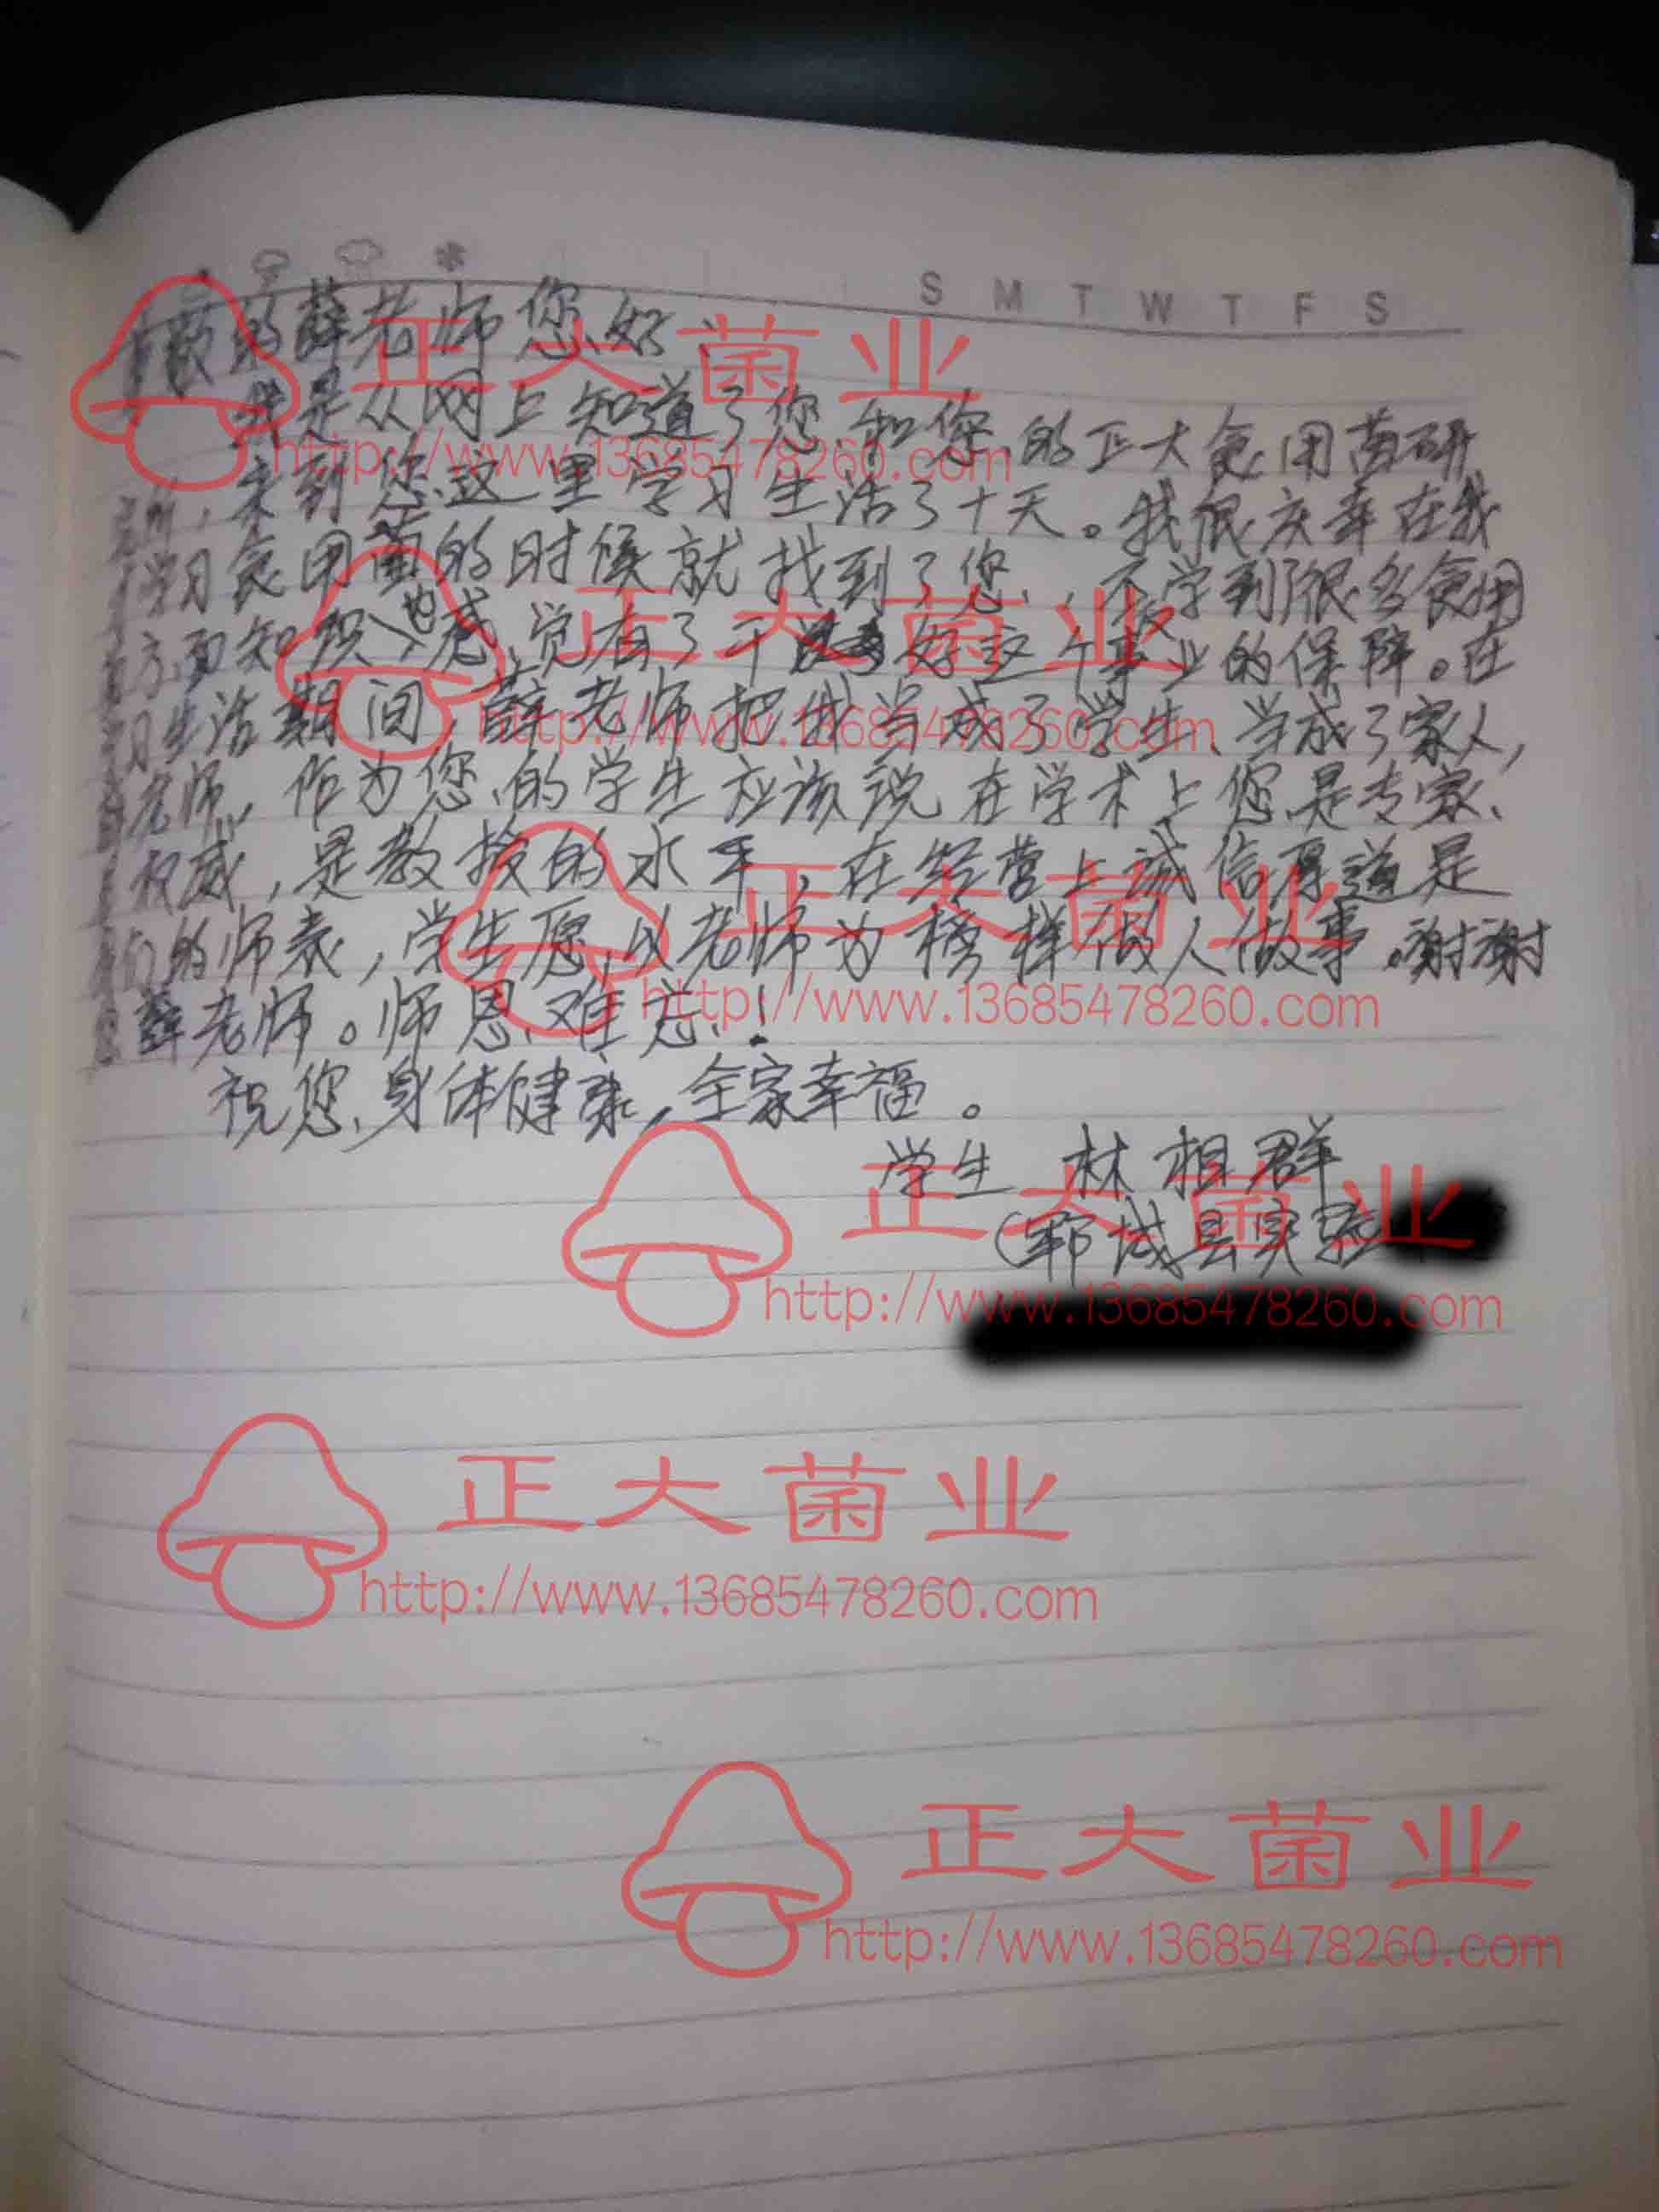 S M T W T F S
敬的薛老师您好、
我是从网上知道了您和您的正大食用菌研
所，来到您这里学习生活了十天。我很庆幸在我
学习食用菌的时候就找到了您，不仅学到了很多食用
方面知识，也感觉有了干好这个事业的保障。在
习生活期间，薛老师把我当成了学生、当成了家人，
老师，作为您的学生应该说在学术上您是专家、
权威，是教授的水平，在经营上诚信厚道是
们的师表，学生愿以老师为榜样做人做事。谢谢
薛老师。师恩难忘！
祝您身体健康，全家幸福。
学生 林相群
（郓城县实验
正大菌业
http://www.13685478260.com
正大菌业
http://www.13685478260.com
正大菌业
http://www.13685478260.com
正大菌业
http://www.13685478260.com
正大菌业
http://www.13685478260.com
正大菌业
http://www.13685478260.com